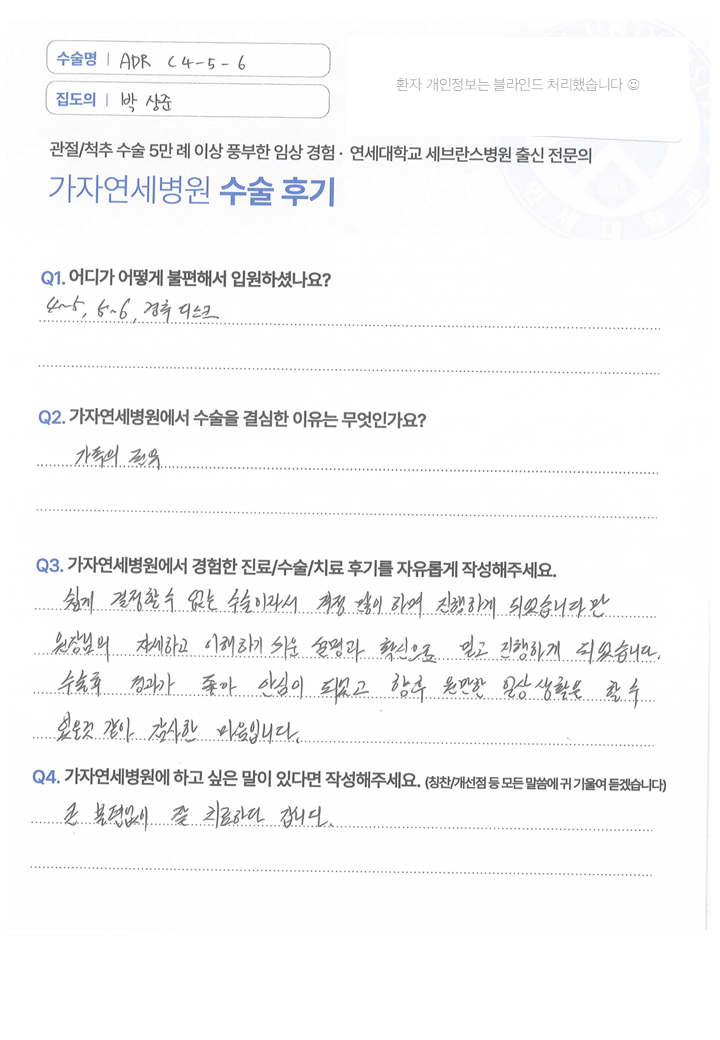 수술명 | ADR C4-5-6
환자 개인정보는 블라인드 처리했습니다 ☺
집도의 | 박상준
관절/척추 수술 5만 례 이상 풍부한 임상 경험 · 연세대학교 세브란스병원 출신 전문의
가자연세병원 수술 후기
Q1. 어디가 어떻게 불편해서 입원하셨나요?
4~5, 5~6, 경추 디스크
Q2. 가자연세병원에서 수술을 결심한 이유는 무엇인가요?
가족의 권유
Q3. 가자연세병원에서 경험한 진료/수술/치료 후기를 자유롭게 작성해주세요.
쉽게 결정할수 없는 수술이라서 걱정 많이 하며 진행하게 되었습니다만
원장님의 자세하고 이해하기 쉬운 설명과 확신으로 믿고 진행하게 되었습니다.
수술후 경과가 좋아 안심이 되었고 향후 원만한 일상생활은 할 수
있을것 같아 감사한 마음입니다.
Q4. 가자연세병원에 하고 싶은 말이 있다면 작성해주세요. (칭찬/개선점 등 모든 말씀에 귀 기울여 듣겠습니다)
큰 불편없이 잘 치료하다 갑니다.